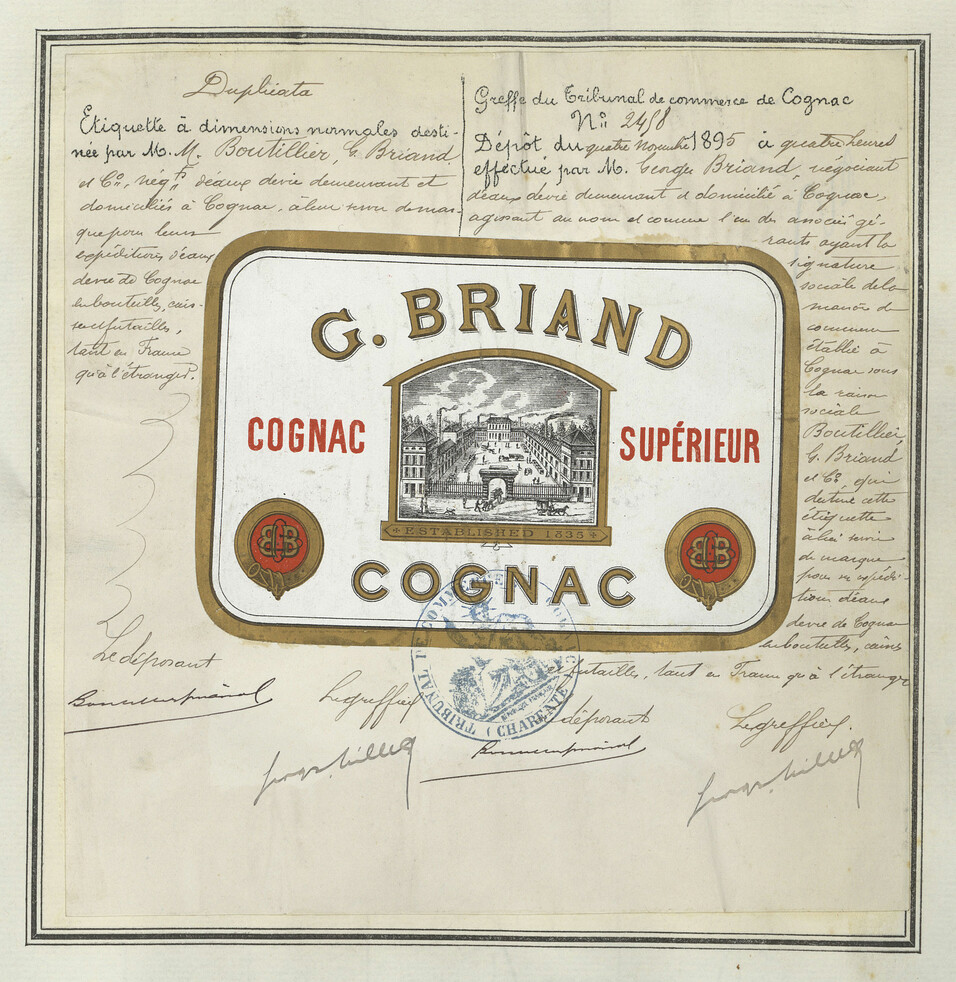 Duplicata
Etiquette à dimensions normales desti-
née par M. M. Boutillier, G. Briand
et Cie, négts d'eaux de vie demeurant et
domiciliés à Cognac, à leur servir de mar-
que pour leurs
expéditions d'eaux
de vie de Cognac
en bouteilles, cais-
ses et futailles,
tant en France
qu'à l'étranger.
Le déposant
Le greffier
Greffe du Tribunal de commerce de Cognac
N° 2458
Dépôt du quatre novembre 1895 à quatre heures
effectué par M. Georges Briand, négociant
d'eaux de vie demeurant et domicilié à Cognac,
agissant au nom et comme l'un des associés gé-
rants ayant la
signature
sociale de la
maison de
commerce
établie à
Cognac sous
la raison
sociale
Boutillier,
G. Briand
et Cie, qui
destine cette
étiquette
à leur servir
de marque
pour ses expédi-
tions d'eaux
de vie de Cognac
en bouteilles, caisses
et futailles, tant en France qu'à l'étranger
déposant
Le greffier
G. BRIAND
COGNAC
SUPÉRIEUR
ESTABLISHED 1835
COGNAC
TRIBUNAL DE COMMERCE
CHARENTE